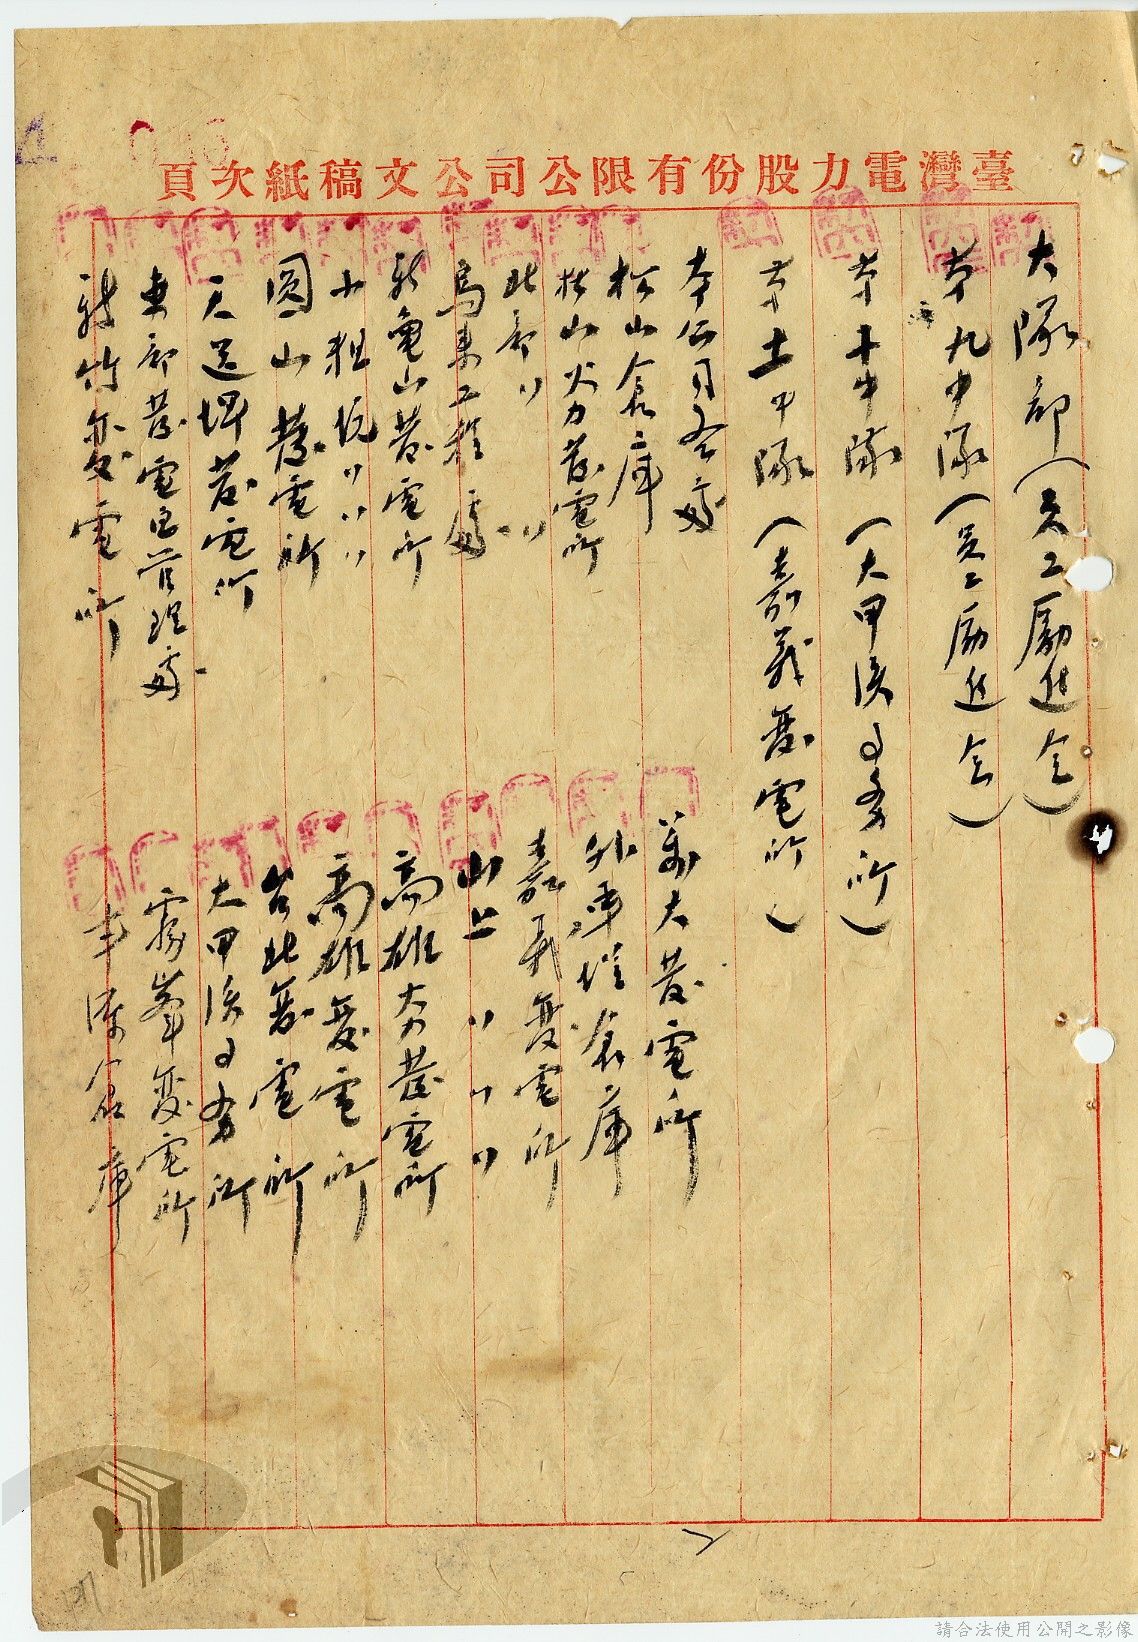 臺灣電力股份有限公司公文稿紙次頁
大隊部(員工勵進会)
第九中隊(員工勵進会)
第十中隊(大甲溪事务所)
第十一中隊(嘉義變電所)
本公司各處
松山倉庫
松山火力發電所
北部〃〃〃
烏来工程處
新龜山發電所
小粗坑〃〃〃
圓山發電所
天送埤發電所
東部發電区管理處
新竹變電所
萬大發電所
外車埕倉庫
嘉義變電所
山上〃〃〃
高雄火發電所
高雄變電所
台北變電所
大甲溪事务所
霧峯變電所
倉庫
請合法使用公開之影像